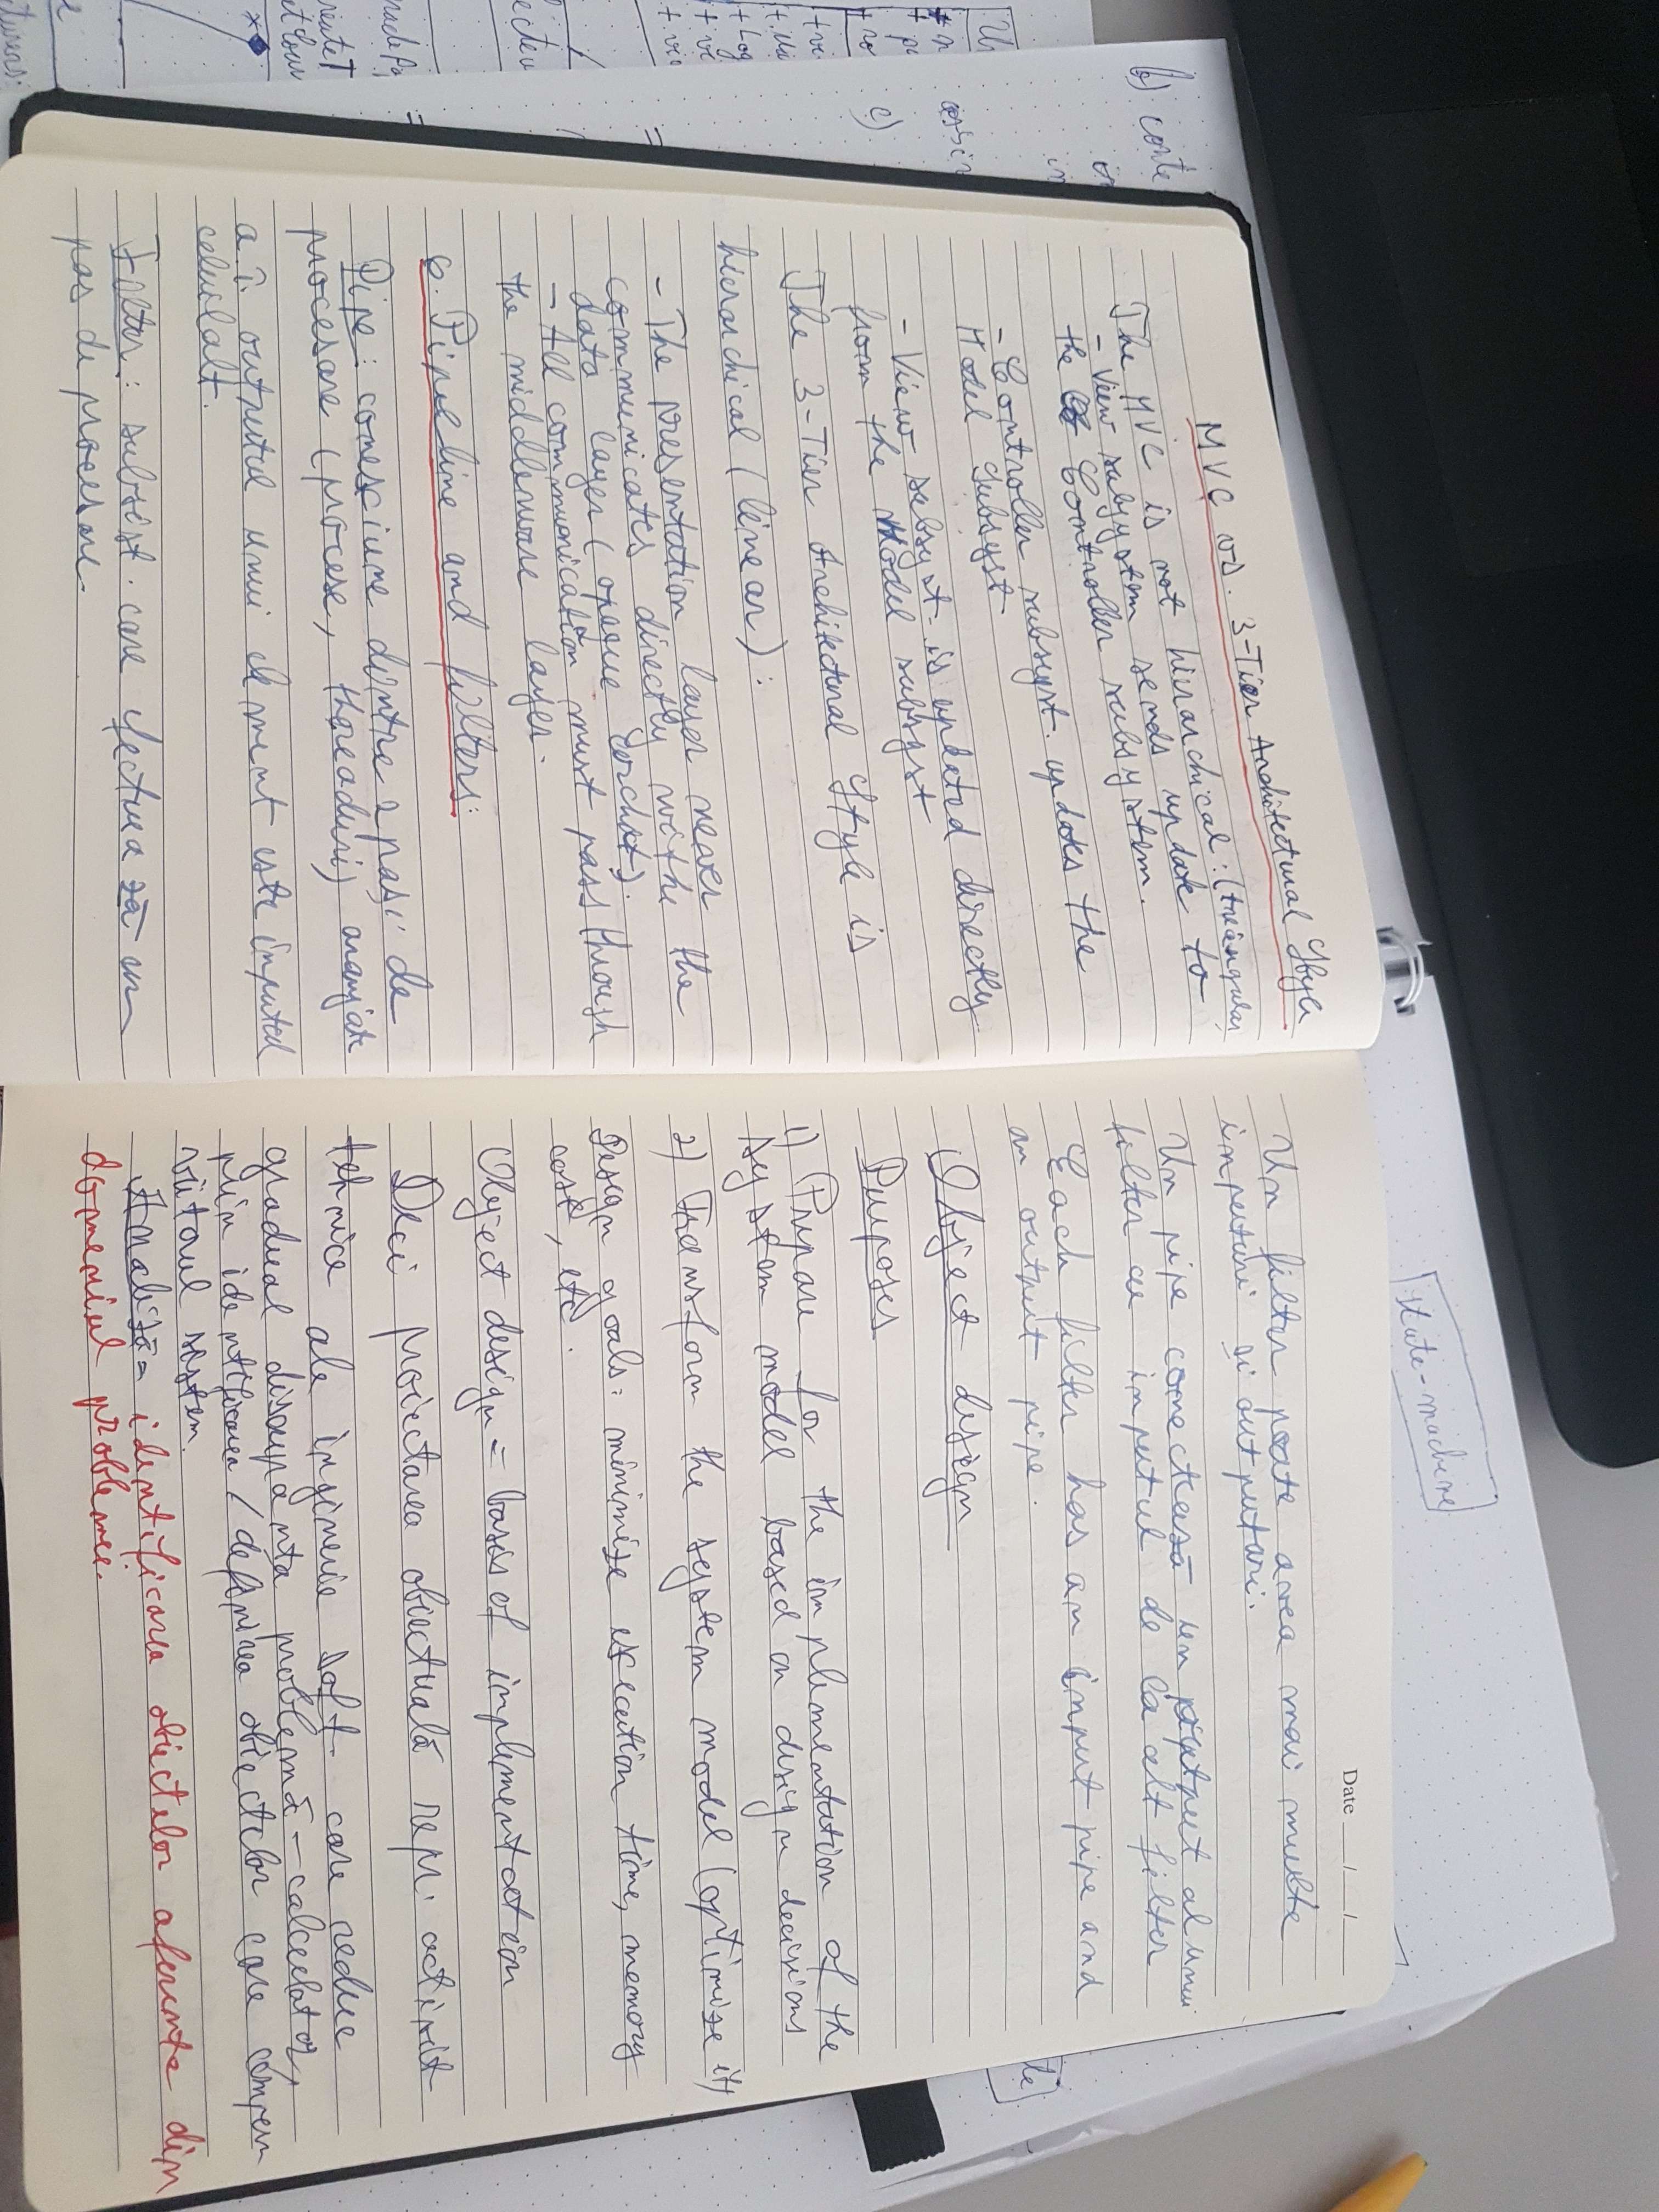 MVC vs. 3-Tier Architectural Style
The MVC is not hierarchical: (triangular)
- View subsystem sends update to
the Controller subsystem.
- Controller subsyst. updates the
Model subsyst.
- View subsyst. is updated directly
from the Model subsyst
The 3-Tier Architectural Style is
hierarchical (linear):
- The presentation layer never
communicates directly with the
data layer (opaque
- All communication must pass through
the middleware layer.
6. Pipeline and filters:
Pipe: conexiune dintre 2 pași de
procesare (procese, threaduri) aranjate
a.î. outputul unui element este inputul
celuilalt.
Filter: subsist. care efectuează un
pas de procesare.
Date __/__/__
Un filter poate avea mai multe
inputuri și outputuri.
Un pipe conectează un output al unui
filter cu inputul de la alt filter
Each filter has an input pipe and
an output pipe.
Object design
Purposes
1) Prepare for the implementation of the
system model based on design decisions
2) Transform the system model (optimize it)
Design goals: minimize execution time, memory
cost, etc.
Object design = basis of implementation
Deci proiectarea obiectuală repr. activit
tehnice ale ingineriei soft. care reduc
gradual discrepanta problemă - calculator,
prin identificarea / definirea obiectelor care compun
viitorul sistem.
Analiză = identificarea obiectelor aferente din
domeniul problemei.
state-machine
b)
c)